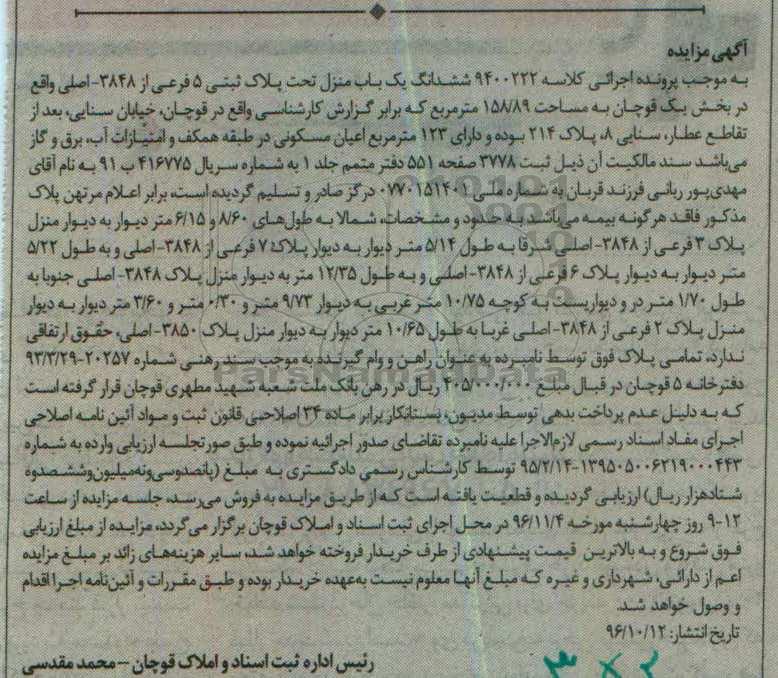 آگهی مزایده
به موجب پرونده اجرائی کلاسه ۹۴۰۰۲۲۲ ششدانگ یک باب منزل تحت پلاک ثبتی ۵ فرعی از ۳۸۴۸- اصلی واقع
در بخش یک قوچان به مساحت ۱۵۸/۸۹ مترمربع که برابر گزارش کارشناسی واقع در قوچان، خیابان سنایی، بعد از
تقاطع عطار، سنایی ۸، پلاک ۲۱۴ بوده و دارای ۱۲۳ مترمربع اعیان مسکونی در طبقه همکف و امتیازات آب، برق و گاز
می‌باشد سند مالکیت آن ذیل ثبت ۳۷۷۸ صفحه ۵۵۱ دفتر متمم جلد ۱ به شماره سریال ۴۱۶۷۷۵ ب ۹۱ به نام آقای
مهدی‌پور ربانی فرزند قربان به شماره ملی ۰۷۷۰۱۵۱۴۰۱ درگز صادر و تسلیم گردیده است، برابر اعلام مرتهن پلاک
مذکور فاقد هرگونه بیمه می‌باشد به حدود و مشخصات، شمالا به طول‌های ۸/۶۰ و ۶/۱۵ متر دیوار به دیوار منزل
پلاک ۳ فرعی از ۳۸۴۸- اصلی شرقا به طول ۵/۱۴ متر دیوار به دیوار پلاک ۷ فرعی از ۳۸۴۸- اصلی و به طول ۵/۲۲
متر دیوار به دیوار پلاک ۶ فرعی از ۳۸۴۸- اصلی و به طول ۱۲/۳۵ متر به دیوار منزل پلاک ۳۸۴۸- اصلی جنوبا به
طول ۱/۷۰ متر در و دیواریست به کوچه ۱۰/۷۵ متر غربی به دیوار ۹/۷۳ متر و ۰/۳۰ متر و ۳/۶۰ متر دیوار به دیوار
منزل پلاک ۲ فرعی از ۳۸۴۸- اصلی غربا به طول ۱۰/۶۵ متر دیوار به دیوار منزل پلاک ۳۸۵۰- اصلی، حقوق ارتفاقی
ندارد، تمامی پلاک فوق توسط نامبرده به عنوان راهن و وام گیرنده به موجب سند رهنی شماره ۲۰۲۵۷-۹۳/۳/۲۹
دفترخانه ۵ قوچان در قبال مبلغ ۴۰۵/۰۰۰/۰۰۰ ریال در رهن بانک ملت شعبه شهید مطهری قوچان قرار گرفته است
که به دلیل عدم پرداخت بدهی توسط مدیون، بستانکار برابر ماده ۳۴ اصلاحی قانون ثبت و مواد آئین نامه اصلاحی
اجرای مفاد اسناد رسمی لازم‌الاجرا علیه نامبرده تقاضای صدور اجرائیه نموده و طبق صورتجلسه ارزیابی وارده به شماره
۱۳۹۵۰۵۰۰۶۲۱۹۰۰۰۴۴۳-۹۵/۲/۱۴ توسط کارشناس رسمی دادگستری به مبلغ (پانصدوسی‌ونه‌میلیون‌وششصدوه
شتادهزار ریال) ارزیابی گردیده و قطعیت یافته است که از طریق مزایده به فروش می‌رسد، جلسه مزایده از ساعت
۹-۱۲ روز چهارشنبه مورخه ۹۶/۱۱/۴ در محل اجرای ثبت اسناد و املاک قوچان برگزار می‌گردد، مزایده از مبلغ ارزیابی
فوق شروع و به بالاترین قیمت پیشنهادی از طرف خریدار فروخته خواهد شد، سایر هزینه‌های زائد بر مبلغ مزایده
اعم از دارائی، شهرداری و غیره که مبلغ آنها معلوم نیست به‌عهده خریدار بوده و طبق مقررات و آئین‌نامه اجرا اقدام
و وصول خواهد شد.
تاریخ انتشار: ۹۶/۱۰/۱۲
رئیس اداره ثبت اسناد و املاک قوچان – محمد مقدسی
۳ × ۲
ParsNamadData